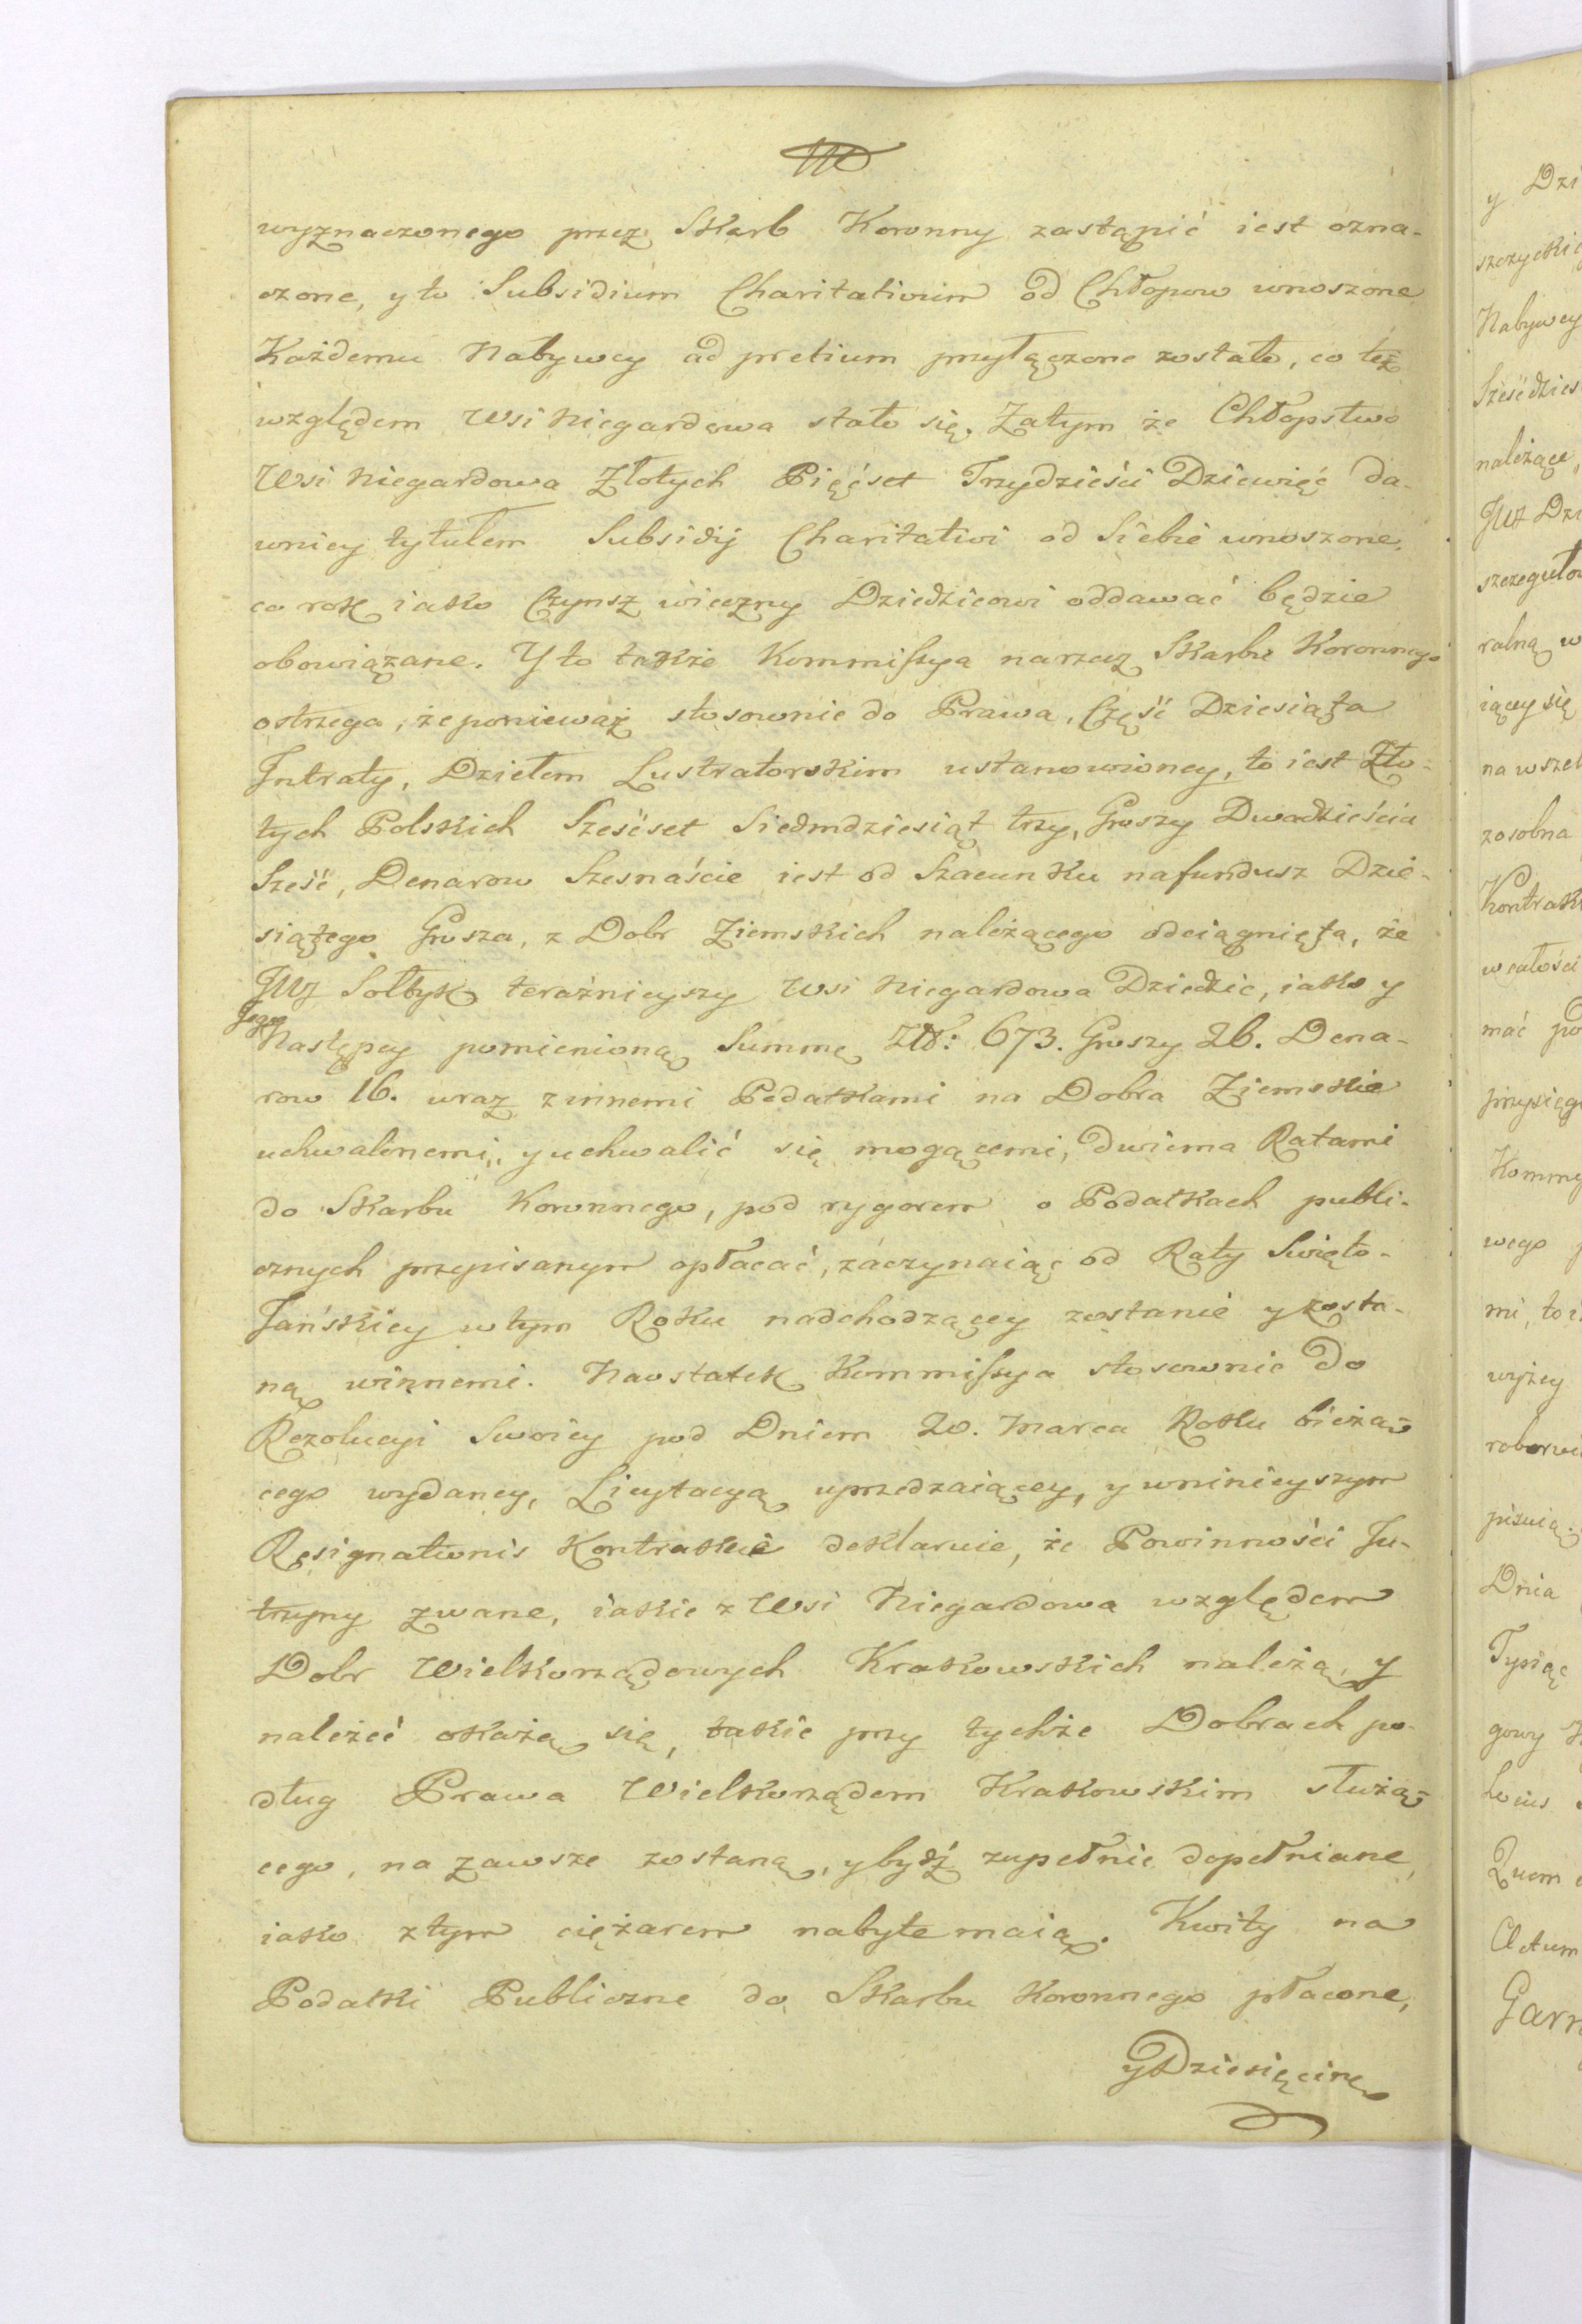 wyznaczonego przez Skarb Koronny zastąpić iest ozna-
czone, y to Subsidium Charitativum od Chłopow wnoszone
Każdemu Nabywcy ad pretium przyłączone zostało, co też
względem Wsi Niegardowa stało się. Zatym że Chłopstwo
Wsi Niegardowa Złotych Pięćset Trzydzieści Dziewięć da-
wniey tytułem Subsidij Charitativi od Siebie wnoszone,
co rok iako Czynsz wieczny Dziedzicowi oddawać będzie
obowiązane. Y to także Kommissya na rzecz Skarbu Koronnego
ostrzega, że ponieważ stosownie do Prawa, Część Dziesiąta
Jntraty, Dziełem Lustratorskim ustanowioney, to iest Zło-
tych Polskich Sześćset Siedmdziesiąt trzy, Groszy Dwadzieścia
Sześć, Denarow Szesnaście iest od Szacunku na fundusz Dzie-
siątego Grosza, z Dobr Ziemskich należącego odciągnięta, że
JWJ Sołtyk teraźnieyszy Wsi Niegardowa Dziedzic, iako y
Jego
Następcy pomienioną Summę Złł: 673. Groszy 26. Dena-
row 16. wraz z innemi Podatkami na Dobra Ziemskie
uchwalonemi, y uchwalić się mogącemi, dwiema Ratami
do Skarbu Koronnego, pod rygorem o Podatkach publi-
cznych przepisanym opłacać, zaczynaiąc od Raty Swięto-
Jańskiey w tym Roku nadchodzącey zostanie y zosta-
ną winnemi. Naostatek Kommissya stosownie do
Rezolucyi Swoiey pod Dniem 20. Marca Roku bieżą-
cego wydaney, Licytacyą uprzedzaiącey, y w ninieyszym
Resignationis Kontrakcie deklaruie, że Powinności Ju-
trzyny zwane, iakie z Wsi Niegardowa względem
Dobr Wielkorządowych Krakowskich należą, y
należeć okażą się, takie przy tychże Dobrach po-
dług Prawa Wielkorządom Krakowskim służą-
cego, na zawsze zostaną, y bydź zupełnie dopełniane,
iako z tym ciężarem nabyte maią. Kwity na
Podatki Publiczne do Skarbu Koronnego płacone,
y Dziesięcinę
y Dzi
Nabywcy
należące,
JWJ Dzi
ralną w
iącey się
na wszel
zosobna
Kontrak
w całości
mać po
przysięg
Kommy
wego p
mi, to i
wyżey
Dnia
Tysiąc
Actum
Garn